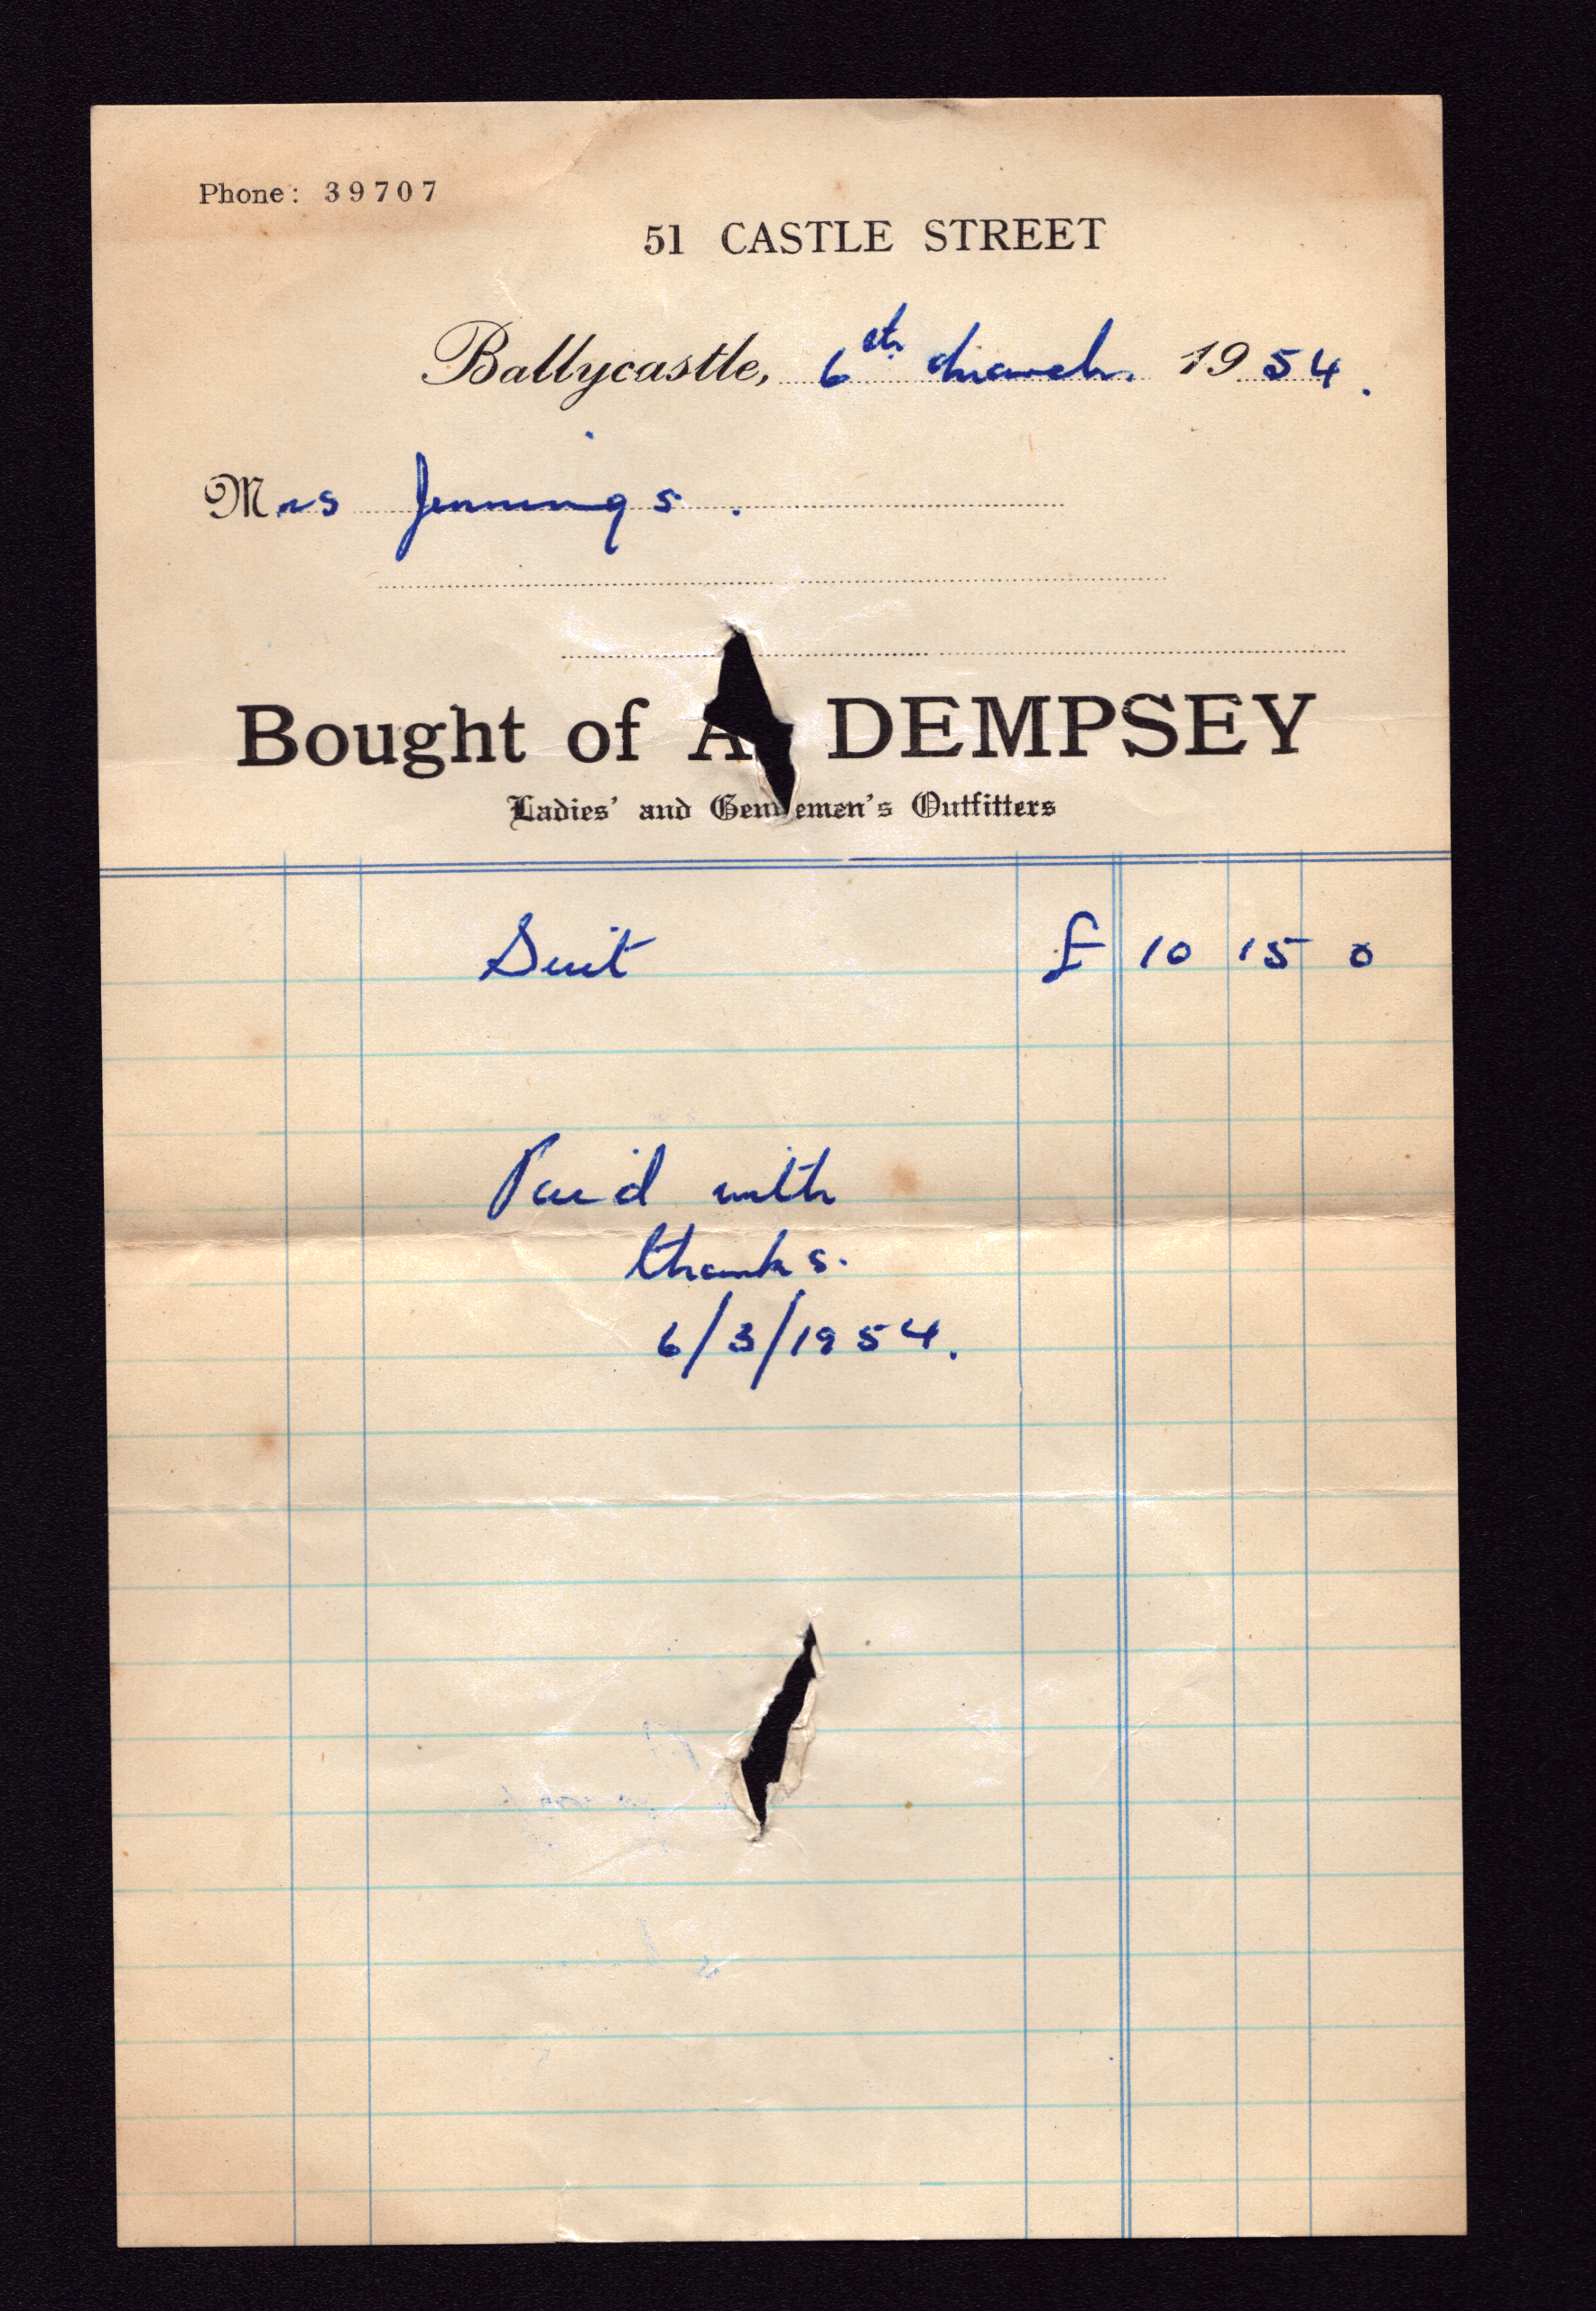 Phone: 39707
51 CASTLE STREET
Ballycastle, 6th March. 1954.
Mrs Jennings.
Bought of A DEMPSEY
Ladies' and Gentlemen's Outfitters
Suit £ 10 15 0
Paid with
thanks.
6/3/1954.